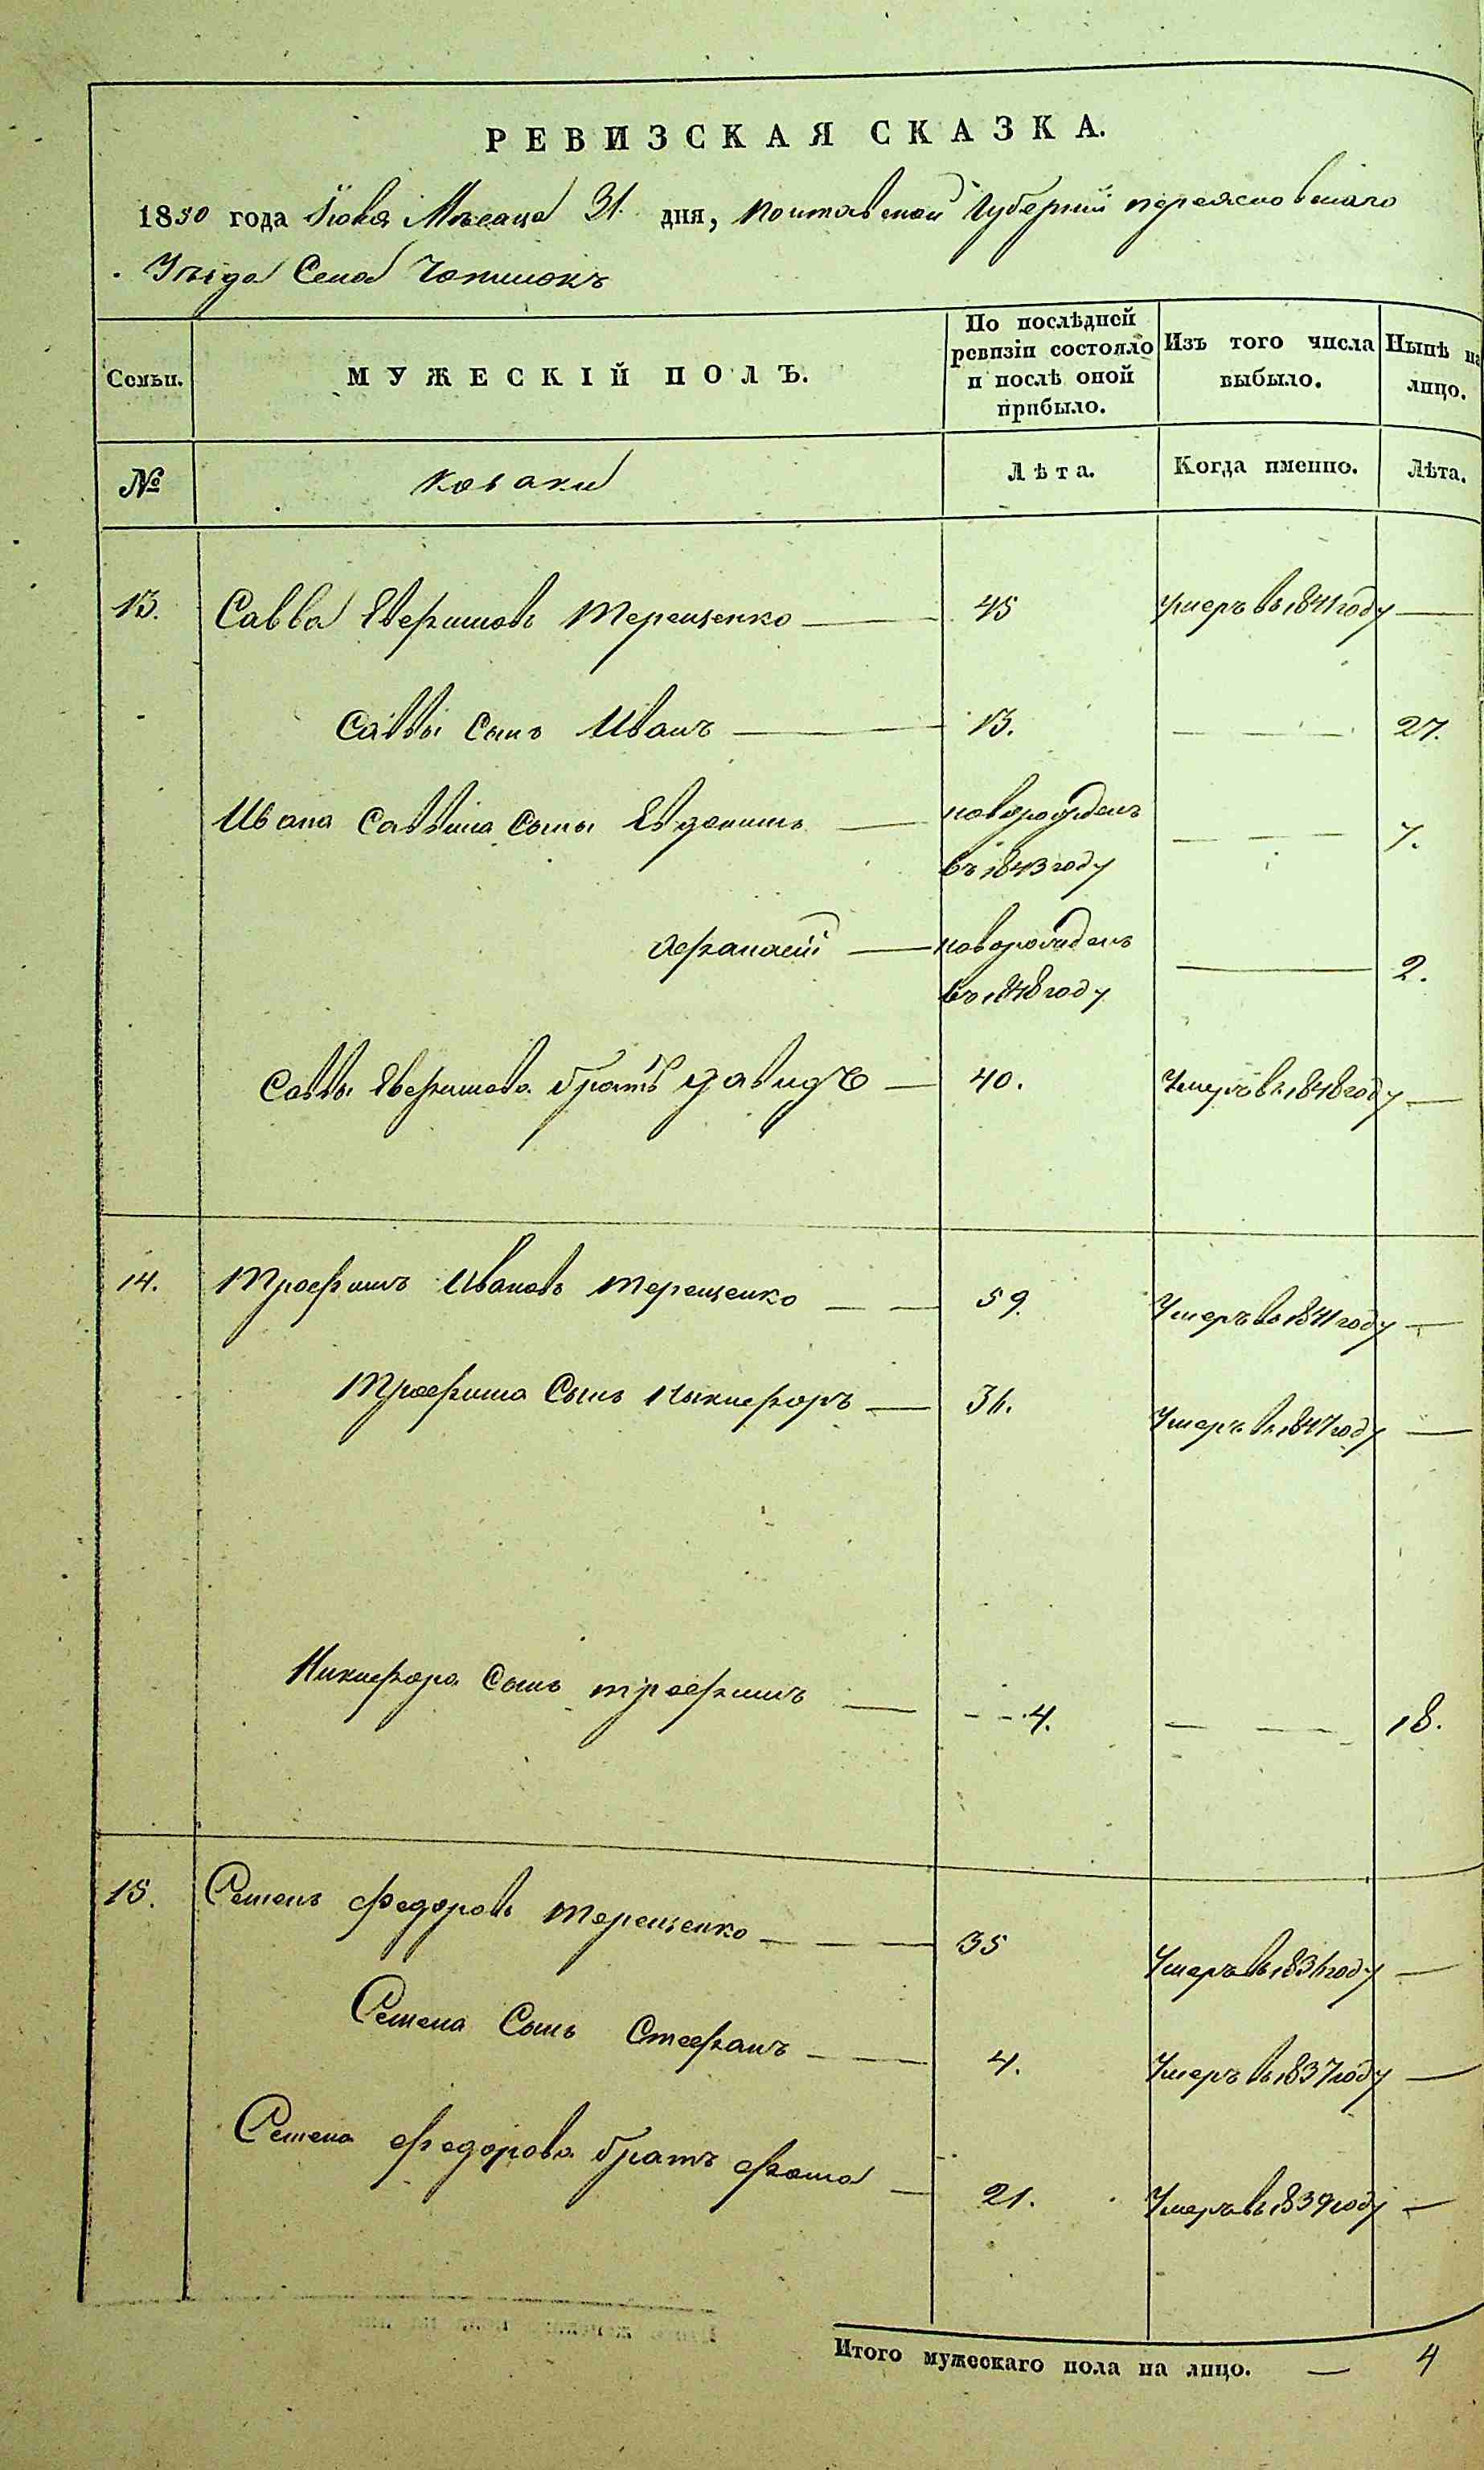 РЕВИЗСКАЯ СКАЗКА.
1850 года Июля Месяца 31. дня, Полтавской Губернии переяславскаго
Уезда Села
Семьи. МУЖЕСКІЙ ПОЛЪ. По послѣдней ревизіи состояло и послѣ оной прибыло. Изъ того числа выбыло. Нынѣ на лицо.
№ козаки Лѣта. Когда именно. Лѣта.
13. Савва Терещенко 45 умеръ въ 1841 году
Саввы Сынъ Иванъ 13. 27.
Ивана Саввина Сыны Евдокимъ новорожденъ 7.
въ 1843 году
Афанасій новорожденъ 2.
въ 1848 году
Саввы братъ давидъ 40. Умеръ въ 1848 году
14. Трофимъ Ивановъ терещенко 59. Умеръ въ 1841 году
Трофима Сынъ Никифоръ 36. Умеръ въ 1847 году
Никифора Сынъ трофимъ 4. 18.
15. Семенъ Федоровъ терещенко 35 Умеръ въ 1836 году
Семена Сынъ Стефанъ 4. Умеръ въ 1837 году
Семена Федорова братъ фома 21. Умеръ въ 1839 году
Итого мужескаго пола на лицо. — 4